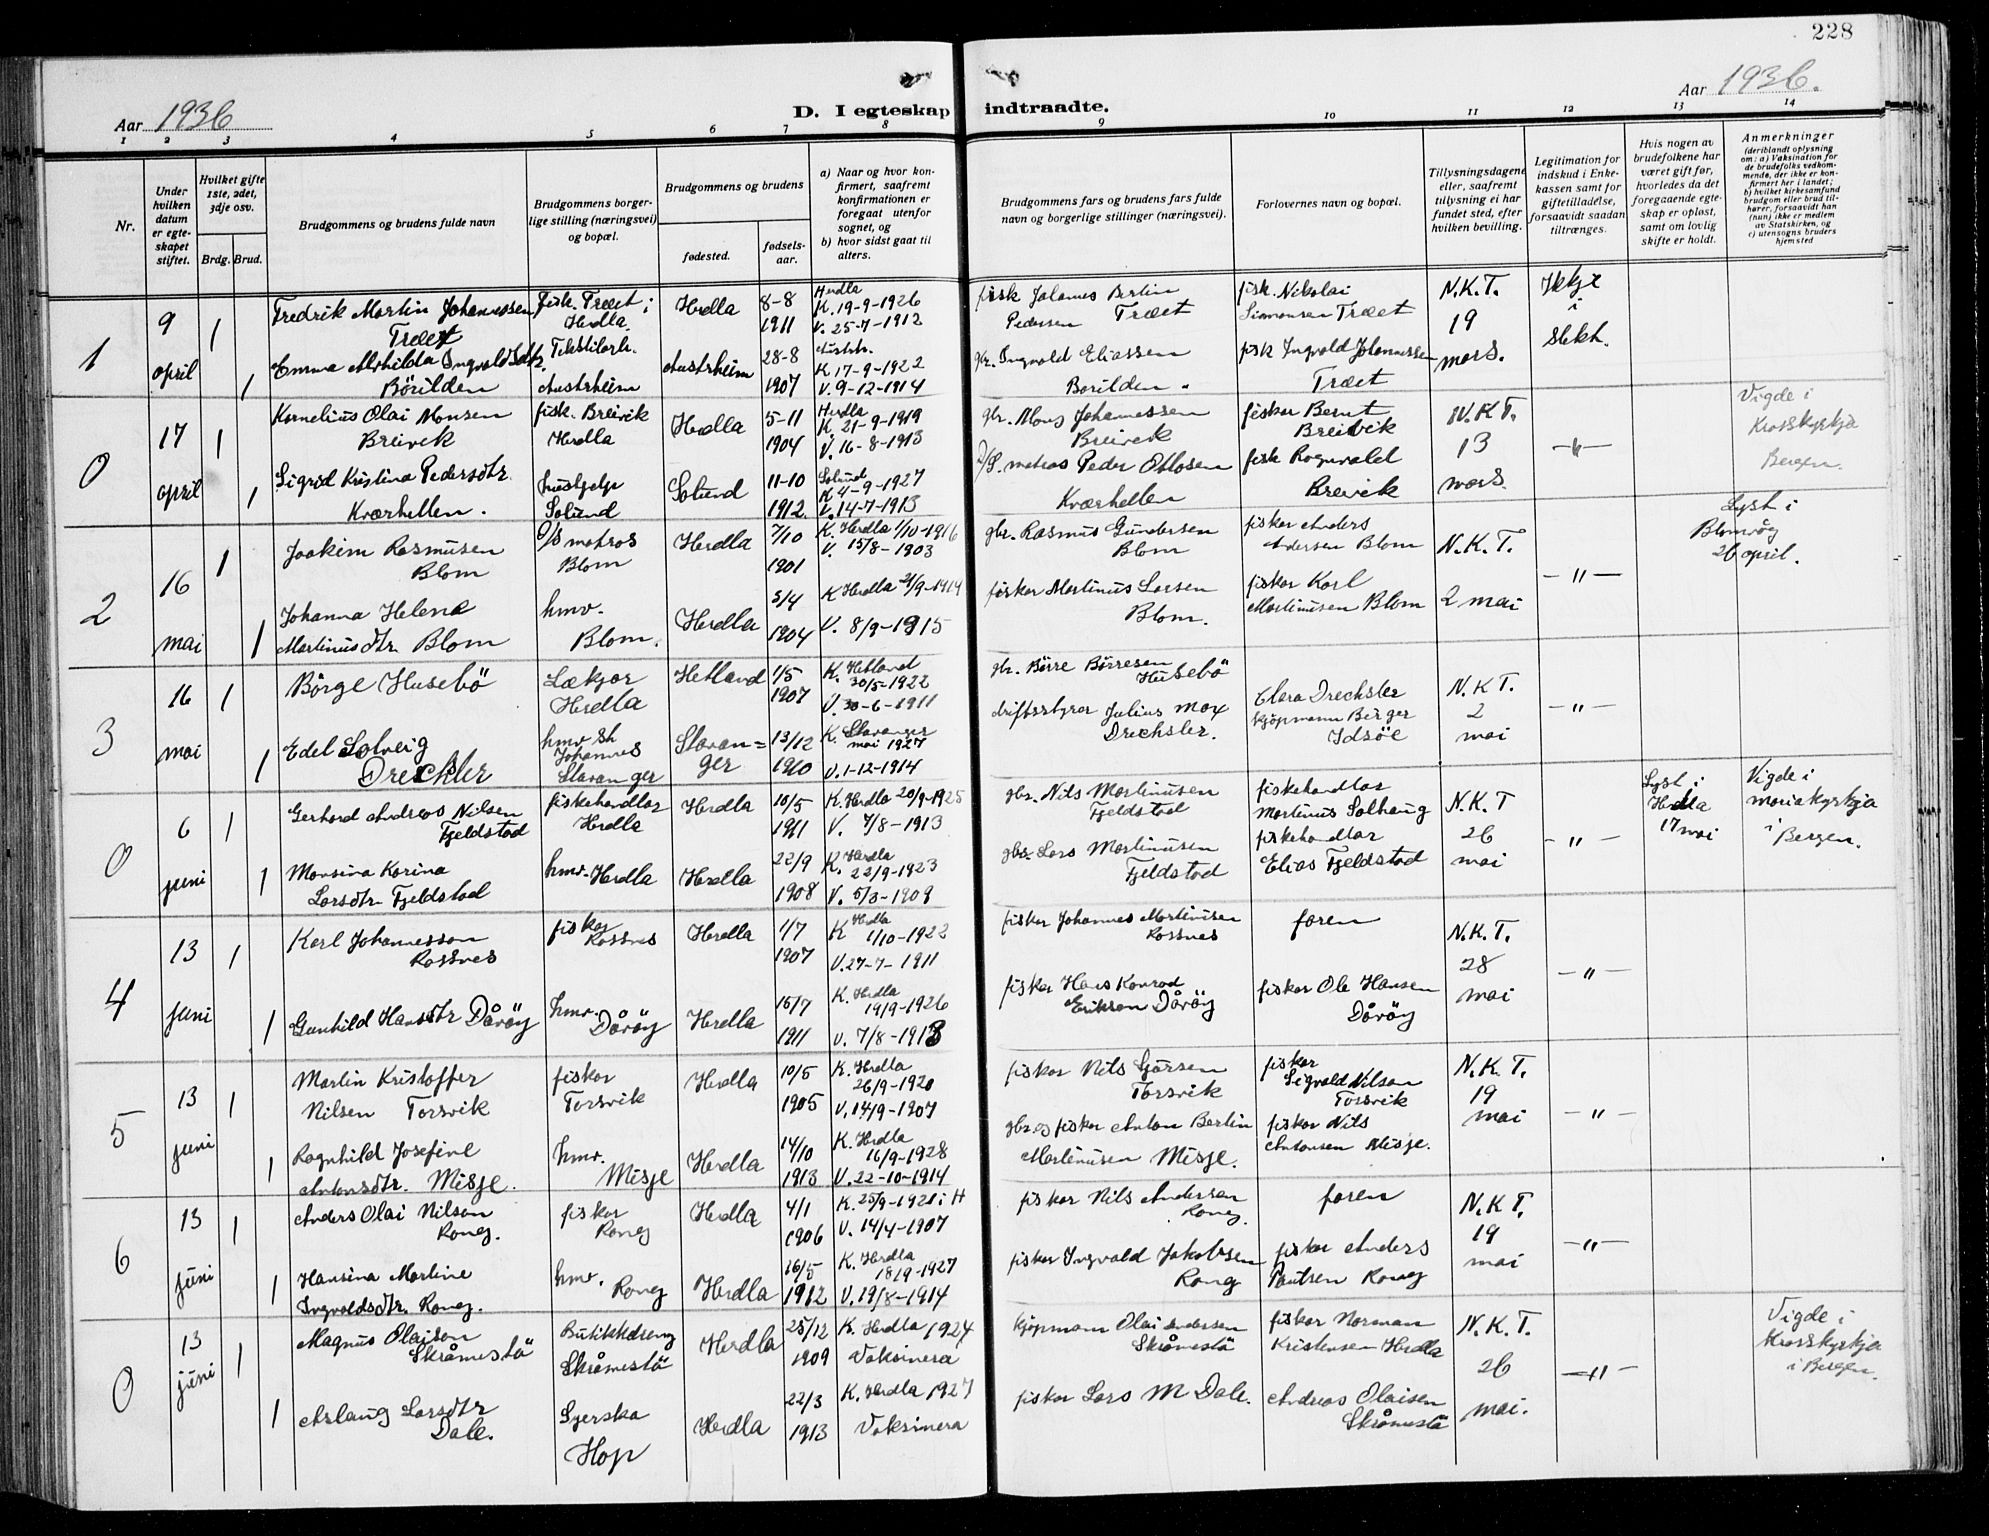 228
Aar 1936
D. I egteskap indtraadte.
Aar 1936.
1 2 3 4 5 6 7 8 9 10 11 12 13 14
Nr.
Under
hvilken
datum
er egte-
skapet
stiftet.
Hvilket gifte
1ste, 2det,
3dje osv.
Brdg. Brud.
Brudgommens og brudens fulde navn
Brudgommens borger-
lige stilling (næringsvei)
og bopæl.
Brudgommens og brudens
fødested.
fødsels-
aar.
a) Naar og hvor kon-
firmert, saafremt
konfirmationen er
foregaat utenfor
sognet, og
b) hvor sidst gaat til
alters.
Brudgommens fars og brudens fars fulde
navn og borgerlige stillinger (næringsvei).
Forlovernes navn og bopæl.
Tillysningsdagene
eller, saafremt
tillysning ei har
fundet sted, efter
hvilken bevilling.
Legitimation for
indskud i Enke-
kassen samt for
giftetilladelse,
forsaavidt saadan
tiltrænges.
Hvis nogen av
brudefolkene har
været gift før,
hvorledes da det
foregaaende egte-
skap er opløst,
samt om lovlig
skifte er holdt.
Anmerkninger
(deriblandt oplysning
om: a) Vaksination for
de brudefolks vedkom-
mende, der ikke er kon-
firmert her i landet;
b) hvilket kirkesamfund
brudgom eller brud til-
hører, forsaavidt han
(hun) ikke er medlem
av Statskirken, og
c) utensogns bruders
hjemsted
1
9
april
1
1
Fredrik Martin Johannessen
Træet
Emma Mathilda Ingvaldsdtr
Börilden
fisk. Træet i
Herdla.
Tekstilarb.
Austrheim
Herdla
Austrheim
8-8
1911
28-8
1907
Herdla
K. 19-9-1926
V. 25-7-1912
Austrh.
K 17-9-1922
V. 9-12-1914
fisk Johannes Bertin
Pedersen Træet
gbr. Ingvald Eliassen
Börilden
fisk. Nikolai
Simonsen Træet
fisk Ingvald Johannessen
Træet
N.K.T.
19
mars.
Ikkje
i
slekt.
0
17
april
1
1
Kornelius Olai Monsen
Breivik
Sigrid Kristina Pedersdtr
Kværhellen.
fisk. Breivik
Herdla
hushjelp
Solund
Herdla
Solund
5-11
1904
11-10
1912.
Herdla
K 21-9-1919
V. 16-8-1913
Solund
K 4-9-1927
V. 14-7-1913
gbr. Mons Johannessen
Breivik
D/S. matros Peder Ottosen
Kværhellen
fiskar Bernt
Breivik
fisk Rognvald
Breivik
N.K.T.
13
mars.
-"-
Vigde i
Krosskyrkja
Bergen.
2
16
mai
1
1
Joakim Rasmusen
Blom
Johanna Helene
Martinusdtr. Blom
D/S matros
Blom
hmv.
Blom.
Herdla
Herdla
7/10
1901
5/4
1904
K. Herdla 1/10-1916
V. 15/8-1903
K Herdla 21/9-1919
V. 8/9-1915
gbr. Rasmus Gundersen
Blom
fiskar Martinus Larsen
Blom.
fiskar Anders
Andersen Blom
fiskar Karl
Martinusen Blom
N.K.T.
2 mai
-"-
Lyst i
Blomvåg
26 april.
3
16
mai
1
1
Börge Husebö
Edel Solveig
Drechsler
Lækjar
Herdla
hmv St
Johannes
Stavanger
Hetland
Stavan=
ger
1/5
1907
13/12
1910
K. Hetland
30/5-1922
V. 30-6-1911
K. Stavanger
mai 1927
V. 1-12-1914
gbr. Börre Börresen
Husebö
driftsstyrar Julius Max
Drechsler.
Clara Drechsler
kjöpmann Birger
Idsöe
N.K.T.
2
mai
-"-
0
6
juni
1
1
Gerhard Andreas Nilsen
Fjeldstad
Monsina Karina
Larsdtr Fjeldstad
fiskehandlar
Herdla
hmv. Herdla
Herdla
Herdla
10/5
1911
22/9
1908
K. Herdla 20/9-1925
V. 7/8-1913
K. Herdla
22/9-1923
V. 5/3-1909
gbr. Nils Martinusen
Fjeldstad
gbr. Lars Martinusen
Fjeldstad
fiskehandlar
Martinus Solhaug
fiskehandlar
Elias Fjeldstad
N.K.T
26
mai
-"-
Lyst i
Herdla
17 mai
Vigde i
mariakyrkja
i
Bergen.
4
13
juni
1
1
Karl Johannesson
Rossnes
Gunhild Hansdtr Dåröy
fiskar
Rossnes
hmv.
Dåröy
Herdla
Herdla
1/7
1907
15/7
1911
K Herdla
1/10-1922
V. 27-7-1911
K. Herdla
19/9-1926
V. 7/8-1913
fiskar Johannes Martinusen
Rossnes
fiskar Hans Konrad
Erikson Dåröy
faren
fiskar Ole Hansen
Dåröy
N.K.T.
28
mai
-"-
5
13
juni
1
1
Martin Kristoffer
Nilsen Torsvik
Ragnhild Josefine
Antonsdtr. Misje.
fiskar
Torsvik
hmv.
Misje
Herdla
Herdla
10/5
1905
14/10
1913
K. Herdla
26/9-1920
V. 14/9-1907
K. Herdla
16/9-1928
V. 22-10-1914
fiskar Nils Gjörsen
Torsvik
gbr. og fiskar Anton Bertin
Martinusen Misje.
fiskar
Sigvald Nilson
Torsvik
fiskar Nils
Antonsen Misje.
N.K.T.
19
mai
-"-
6
13
juni
1
1
Anders Olai Nilson
Rong.
Hansina Martine
Ingvaldsdtr. Rong.
fiskar
Rong
hmv.
Rong
Herdla
Herdla
4/1
1906
16/5
1912
K. 25/9-1921 i H
V. 14/4-1907
K. Herdla
18/9-1927
V. 19/8-1914
fiskar Nils Andersen
Rong.
fiskar Ingvald Jakobsen
Rong
faren
fiskar Anders
Paulsen Rong
N.K.T.
19
mai
-"-
0
13
juni
1
1
Magnus Olaison
Skråmestö
Aslaug Larsdtr
Dale.
Butikkdreng
Skråmestö
Syerska
Hop
Herdla
Herdla
25/12
1909
22/3
1913
K. Herdla 1924
Vaksinera
K. Herdla 1927
Vaksinera
kjöpmann Olai Andersen
Skråmestö
fiskar Lars M Dale.
fiskar Norman
Kristensen Herdla
Andreas Olaisen
Skråmestö
N.K.T.
26
mai.
-"-
Vigde i
Krosskyrkja
i Bergen.